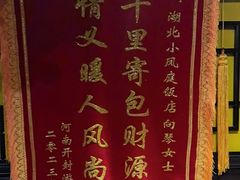 湖北小凤庭饭店向琴女士
千里寄包财源
情义暖人风尚
河南开封
二〇二三